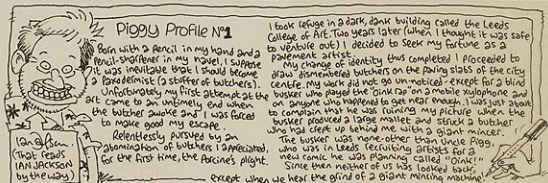 Piggy Profile Nº1
Born with a pencil in my hand and a
pencil-sharpener in my navel, I suppose
it was inevitable that I should become
a Paxodermist (a stuffer of butchers).
Unfortunately my first attempt at the
art came to an untimely end when
the butcher awoke and I was forced
to make good my escape.
Relentlessly pursued by an
abomination of butchers I appreciated,
for the first time, the Porcine's plight.
Ian
(That reads
IAN JACKSON
by the way)
I took refuge in a dark, dank building called the Leeds
College of Art. Two years later (when I thought it was safe
to venture out) I decided to seek my fortune as a
pavement artist.
My change of identity thus completed I proceeded to
draw dismembered butchers on the paving slabs of the city
centre. My work did not go un-noticed - except for a blind
busker who played the "oink rap" on a mobile xylophone and
on anyone who happened to get near enough. I was just about
to complain that he was ruining my picture when the
busker produced a large mallet and struck a butcher
who had crept up behind me with a giant mincer.
The busker was none-other than Uncle Pigg,
who was in Leeds recruiting artists for a
new comic he was planning called "Oink!"
Since then neither of us has looked back,
except when we hear the grind of a giant mincing machine!